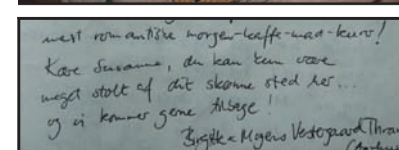 mest romantiske morgen-kaffe-mad-kurv!
Kære Susanne, du kan kun være
meget stolt af dit skønne sted her...
og vi kommer gerne tilbage!
Birgitte & Mogens Vestergaard Thran
(Aarhus